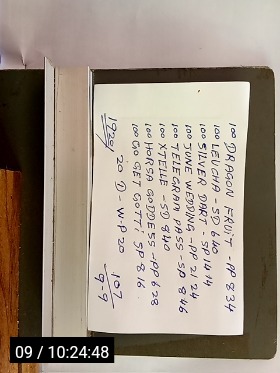 100 DRAGON FRUIT - PP 834
100 LEUCHA - SD 640
100 SILVER DART : SP 1414
100 JUNE WEDDING - PP 21/24
100 TELEGRAM PASS - SD 846
100 XTELLE - SD 940
100 HORSA GODDESS - PP 628
100 GO GET GOTTI SP 816
20 D - W.P 20
107
9-9
09 / 10:24:48